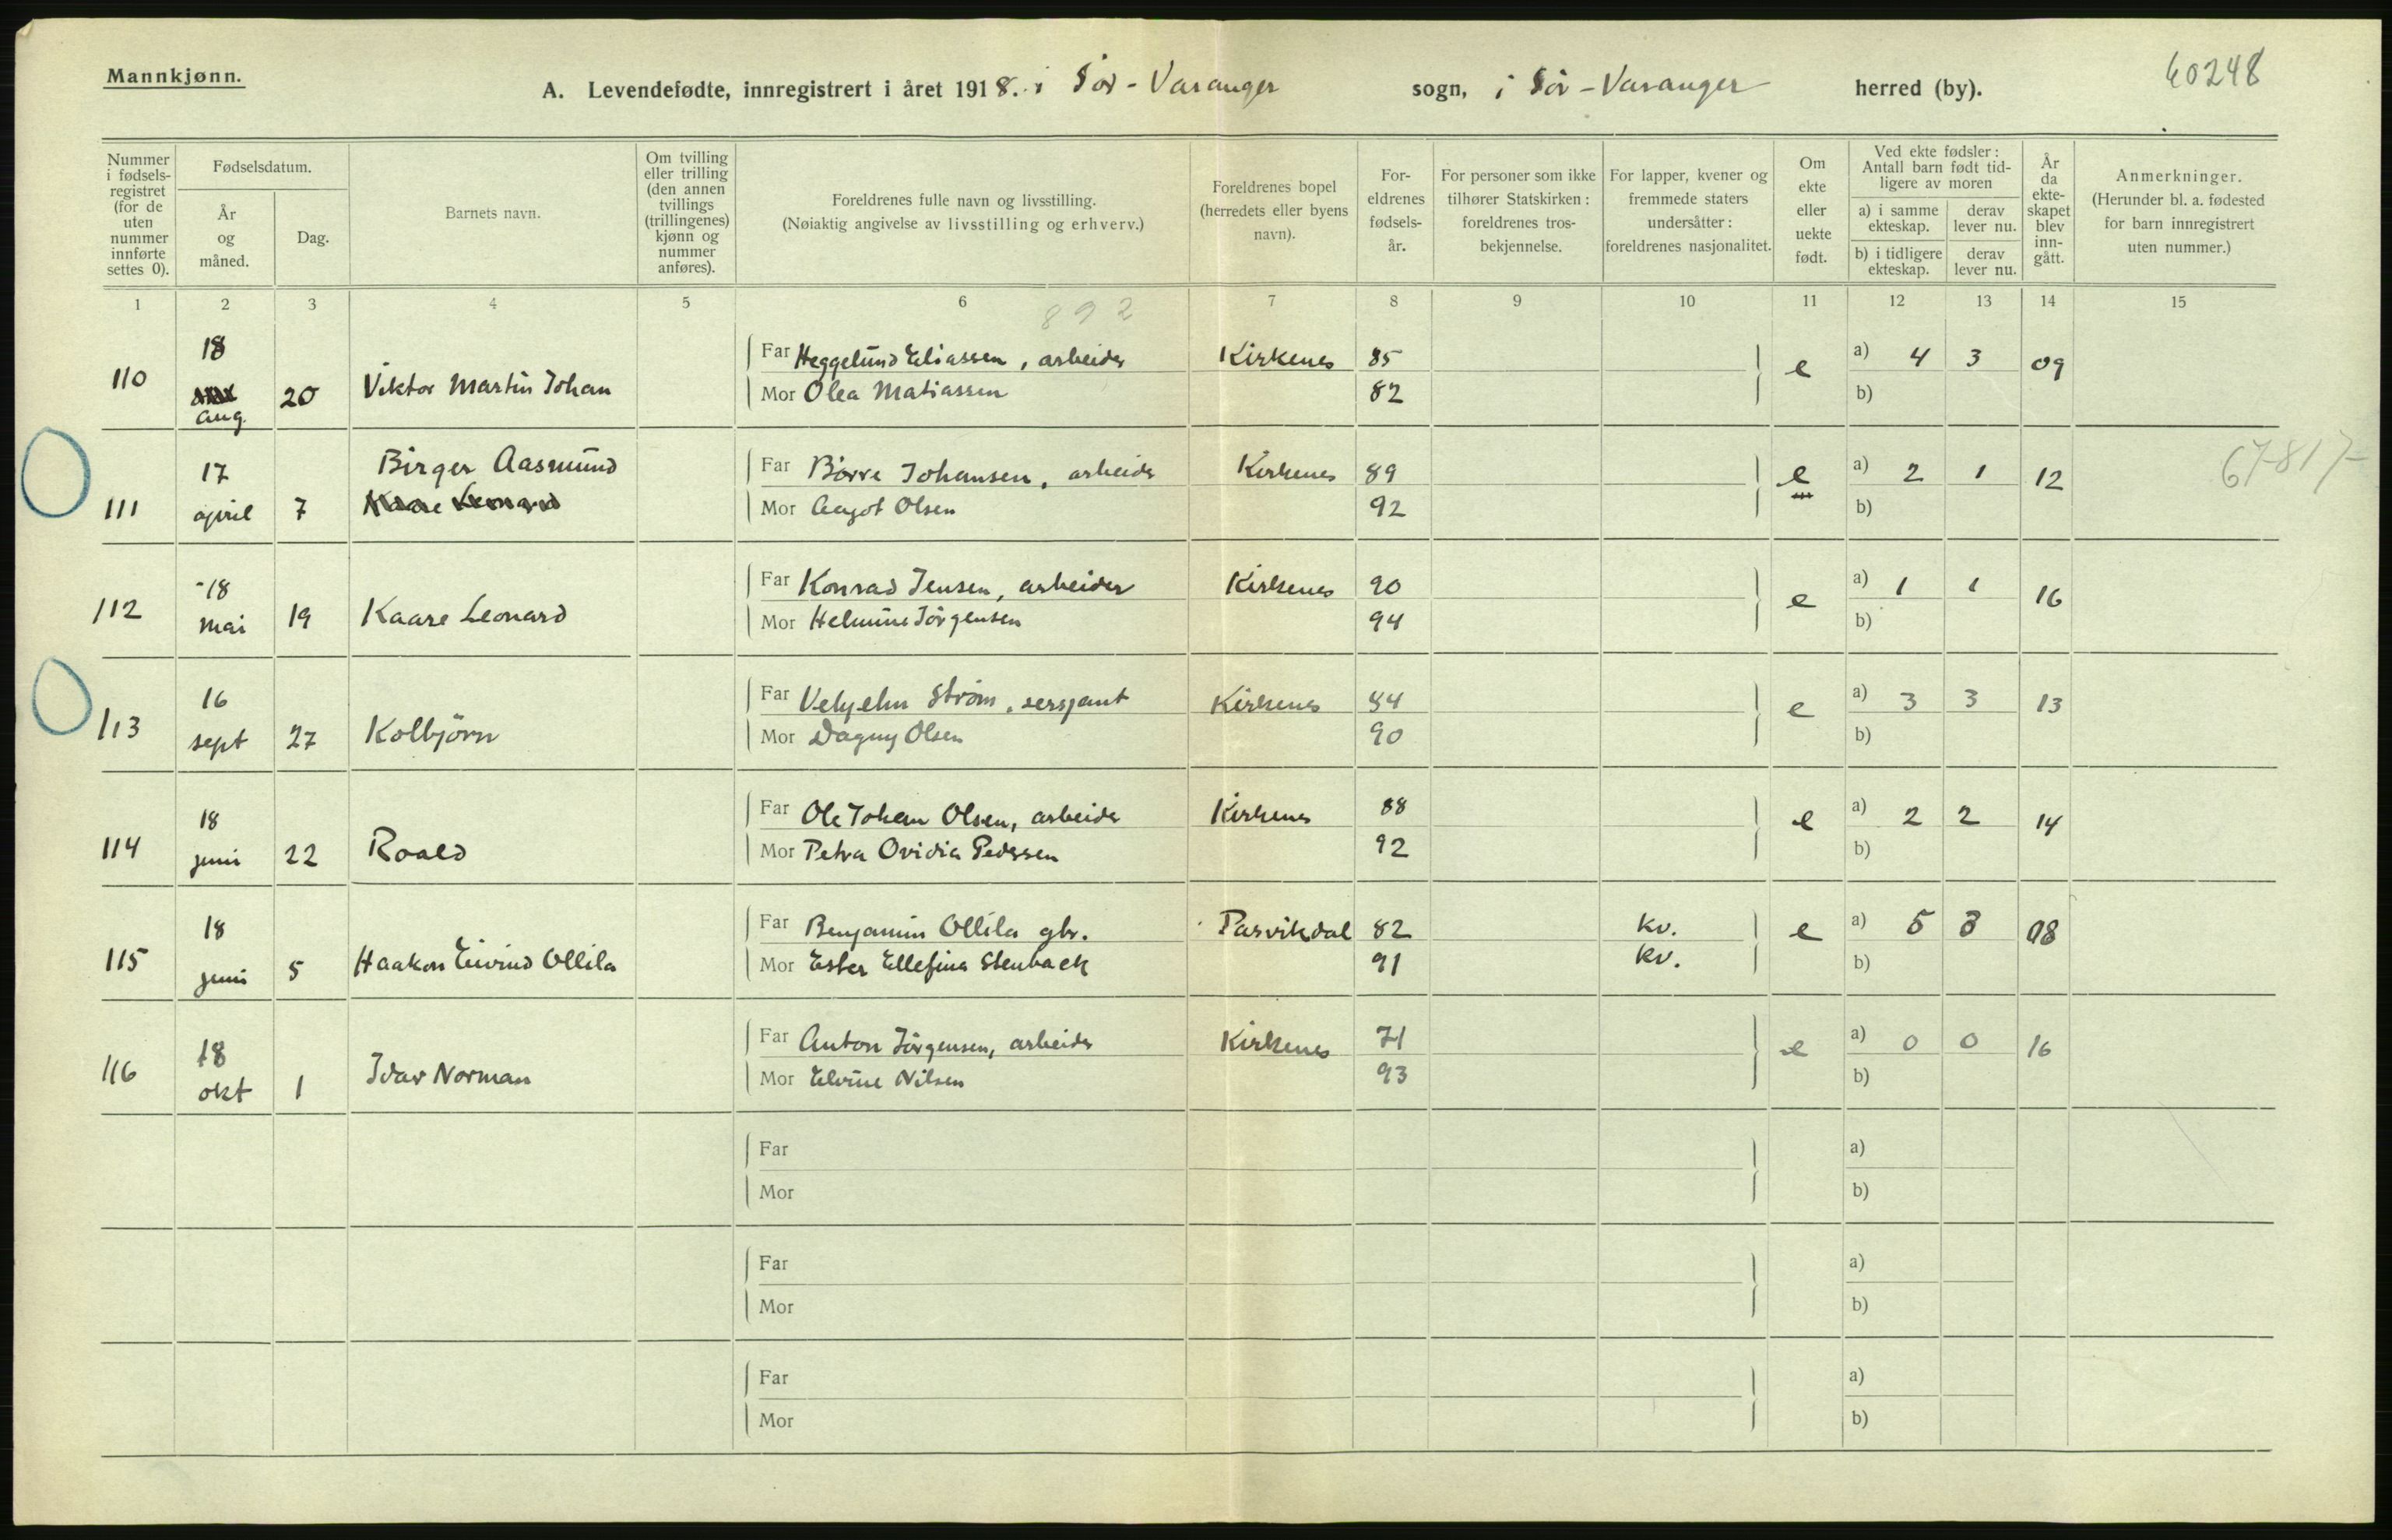 Mannkjønn.
A. Levendefødte, innregistrert i året 1918. i Sör-Varanger sogn, i Sör-Varanger herred (by).
60248
Nummer i fødselsregistret (for de uten nummer innførte settes 0).
Fødselsdatum.
År og måned.
Dag.
Barnets navn.
Om tvilling eller trilling (den annen tvillings (trillingenes) kjønn og nummer anføres).
Foreldrenes fulle navn og livsstilling.
(Nøiaktig angivelse av livsstilling og erhverv.)
Foreldrenes bopel (herredets eller byens navn).
Foreldrenes fødselsår.
For personer som ikke tilhører Statskirken: foreldrenes trosbekjennelse.
For lapper, kvener og fremmede staters undersåtter: foreldrenes nasjonalitet.
Om ekte eller uekte født.
Ved ekte fødsler: Antall barn født tidligere av moren
a) i samme ekteskap.
derav lever nu.
b) i tidligere ekteskap.
derav lever nu.
År da ekteskapet blev inngått.
Anmerkninger.
(Herunder bl. a. fødested for barn innregistrert uten nummer.)
1 2 3 4 5 6 7 8 9 10 11 12 13 14 15
892
110 18 aug. 20 Viktor Martin Johan
Far Heggelund Eliassen, arbeider Kirkenes 85 e a) 4 3 09
Mor Olea Matiassen 82 b)
111 17 april 7 Birger Aasmund
Kaare Leonard
Far Börre Johansen, arbeider Kirkenes 89 e a) 2 1 12 67817-
Mor Aagot Olsen 92 b)
112 -18 mai 19 Kaare Leonard
Far Konrad Jensen, arbeider Kirkenes 90 e a) 1 1 16
Mor Helmine Jörgensen 94 b)
113 16 sept 27 Kolbjörn
Far Vehjelm Ström, sersjant Kirkenes 84 e a) 3 3 13
Mor Dagny Olsen 90 b)
114 18 juni 22 Roald
Far Ole Johan Olsen, arbeider Kirkenes 88 e a) 2 2 14
Mor Petra Ovidia Pedersen 92 b)
115 18 juni 5 Haakon Eivind Ollila
Far Benjamin Ollila gbr. Pasvikdal 82 kv. e a) 5 3 08
Mor Ester Ellefina Stenback 91 kv. b)
116 18 okt 1 Idar Norman
Far Anton Jörgensen, arbeider Kirkenes 71 e a) 0 0 16
Mor Elvine Nilsen 93 b)
Far a)
Mor b)
Far a)
Mor b)
Far a)
Mor b)